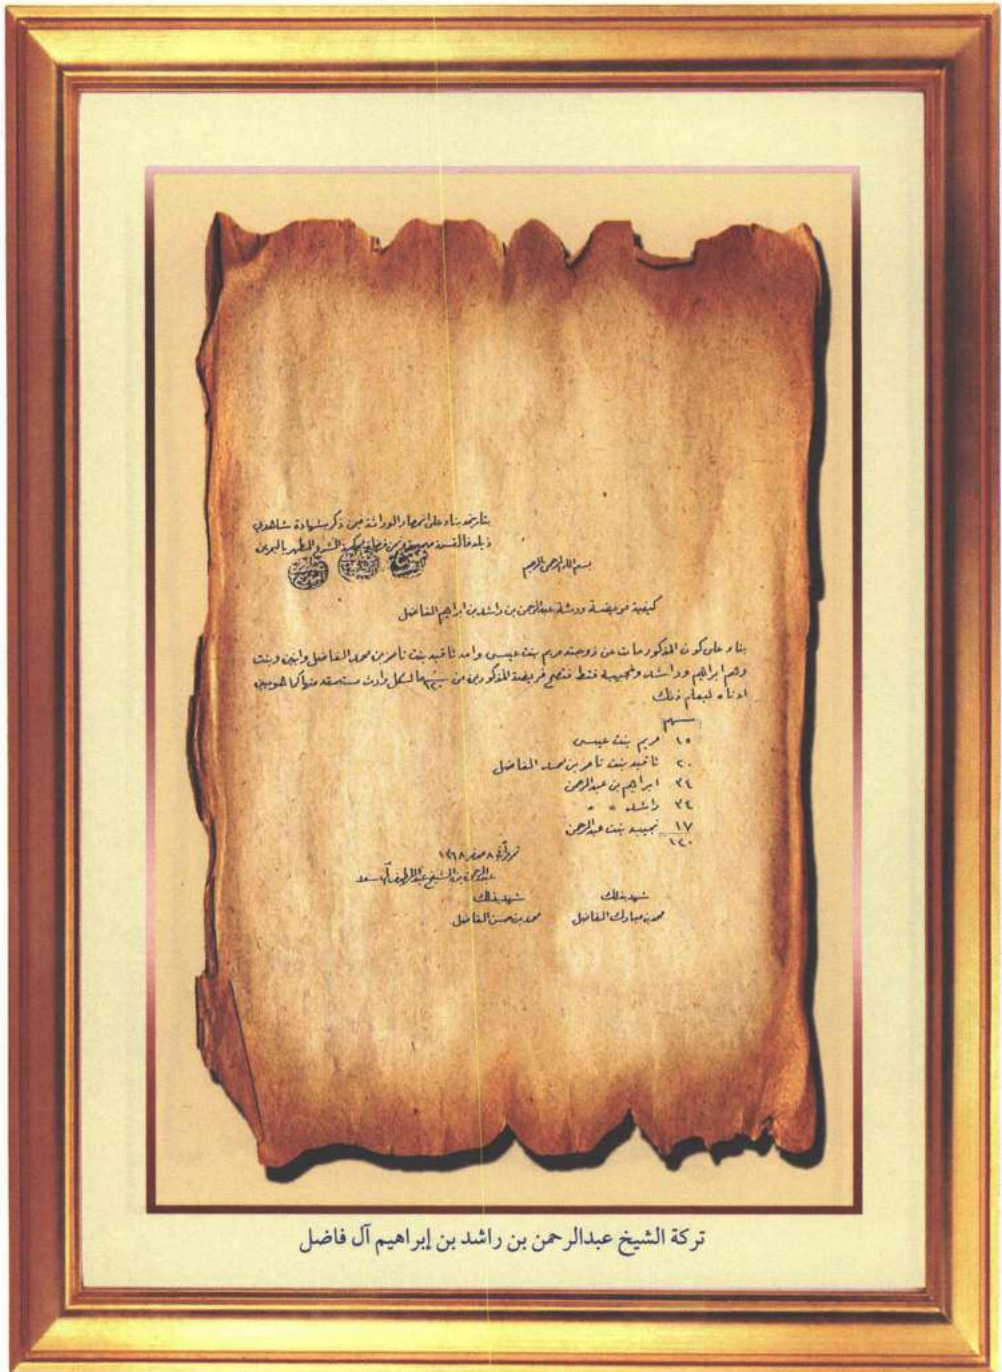 بتاريخه بناء على انحصار الوراثة فيمن ذكر بشهادة شاهدين
ذيله فالقسمة صحيحة من قضاة محكمة الشرع المطهر بالبحرين
بسم الله الرحمن الرحيم
كيفية فريضة ورثة عبدالرحمن بن راشد بن ابراهيم الفاضل
بناء على كون المذكور مات عن زوجته مريم بنت عيسى وامه ثاقبه بنت ناصر بن محمد الفاضل وابنين وبنت
وهم ابراهيم وراشد ونجيبة فقط فتصح فريضة المذكورين من ١٢٠ سهما لكل وارث مستحقه منها كما هو مبين
ادناه ليعلم ذلك
سهم
١٥ مريم بنت عيسى
٢٠ ثاقبه بنت ناصر بن محمد الفاضل
٣٤ ابراهيم بن عبدالرحمن
٣٤ راشد " "
١٧ نجيبه بنت عبدالرحمن
١٢٠
٨ صفر ١٣٦٨
عبدالرحمن بن الشيخ عبداللطيف آل سعد
شهد بذلك
شهد بذلك
محمد بن مبارك الفاضل
محمد بن حسن الفاضل
تركة الشيخ عبدالرحمن بن راشد بن إبراهيم آل فاضل